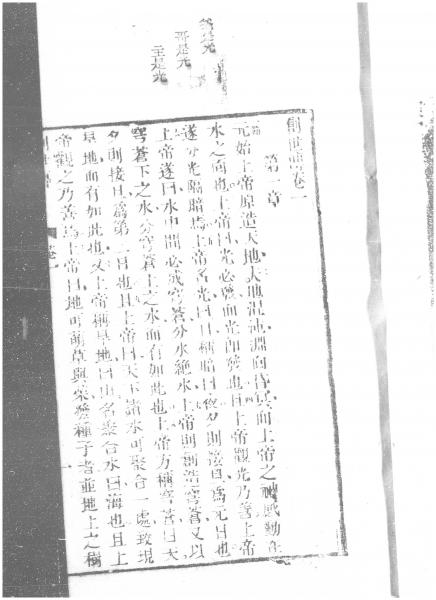 爺是光
哥是光
主是光
創世傳卷一
第一章
元始上帝原造天地夫地混沌淵面昏冥而上帝之神感動在
水之面也上帝曰光必發而光即發也且上帝觀光乃善上帝
遂分光隔暗焉上帝名光曰日稱暗曰夜夕則接旦爲元日也
上帝遂曰水中間必成穹蒼分水絶水上帝則創造穹蒼又以
穹蒼下之水分穹蒼上之水而有如此也上帝方稱穹蒼曰天
夕則接旦爲第二日也且上帝曰天下諸水可聚合一處致現
旱地而有如此也又上帝稱旱地曰田名聚合水曰海也且上
帝觀之乃善焉上帝曰地可萌草與菜發種子者並地上之樹
卷一
一